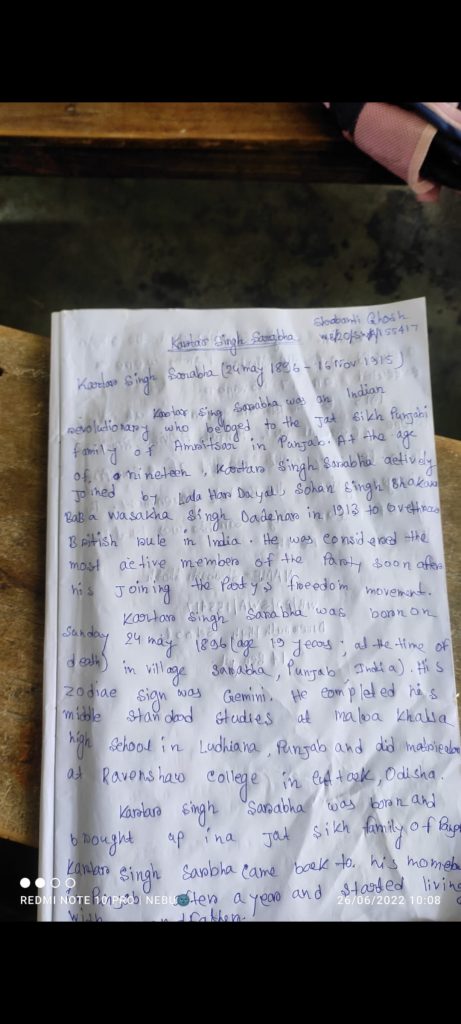 Shabanti Ghosh
Kartar Singh Sarabha
Kartar Singh Sarabha (24 may 1896 - 16 Nov 1915)
Kartar Sing Sarabha was an Indian
revolutionary who beloged to the Jat Sikh Punjabi
family of Amritsar in Punjab. At the age
of nineteen, Kartar Singh Sarabha actively
joined by Lala Har Dayal, Sohan Singh Bhakana
BaBa Wasakha Singh Dadehar in 1913 to overthrow
British rule in India. He was considered the
most active member of the Party soon after
his joining the Party's freedom movement.
Kartar Singh Sarabha was born on
Sunday 24 may 1896 (age 19 years; at the time of
death) in village Sarabha, Punjab India). His
zodiac sign was Gemini. He completed his
middle standard studies at Malwa Khalsa
high School in Ludhiana, Punjab and did
at Ravenshaw college in Cuttack, Odisha.
Kartar Singh Sarabha was born and
brought up in a Jat Sikh family of
Kartar Singh Sarabha came back to his
Punjab after a year and started living
with
REDMI NOTE 10 PRO | NEBU
26/06/2022 10:08